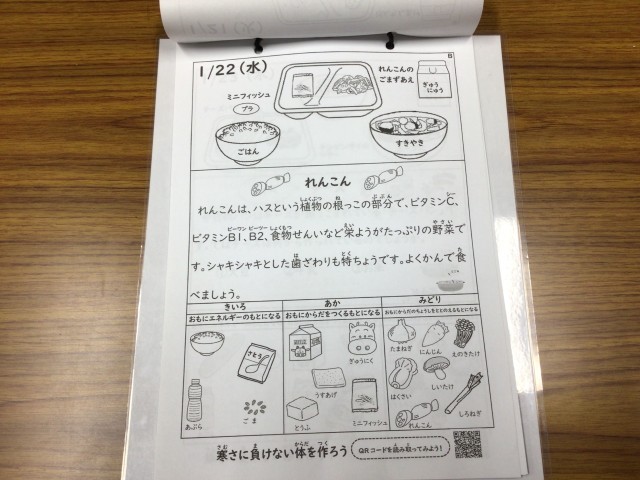 1/22(水)
B
れんこんの
ごまずあえ
ぎゅう
にゅう
ミニフィッシュ
プラ
ごはん
すきやき
れんこん
れんこんは、ハスという植物の根っこの部分で、ビタミンC、
ビタミンB1、B2、食物せんいなど栄ようがたっぷりの野菜で
す。シャキシャキとした歯ざわりも特ちょうです。よくかんで食
べましょう。
きいろ
おもにエネルギーのもとになる
さとう
あぶら
ごま
あか
おもにからだをつくるもとになる
ぎゅうにく
うすあげ
とうふ
ミニフィッシュ
みどり
おもにからだのちょうしをととのえるもとになる
たまねぎ
にんじん
えのきたけ
はくさい
しいたけ
しろねぎ
れんこん
寒さに負けない体を作ろう
QRコードを読み取ってみよう!